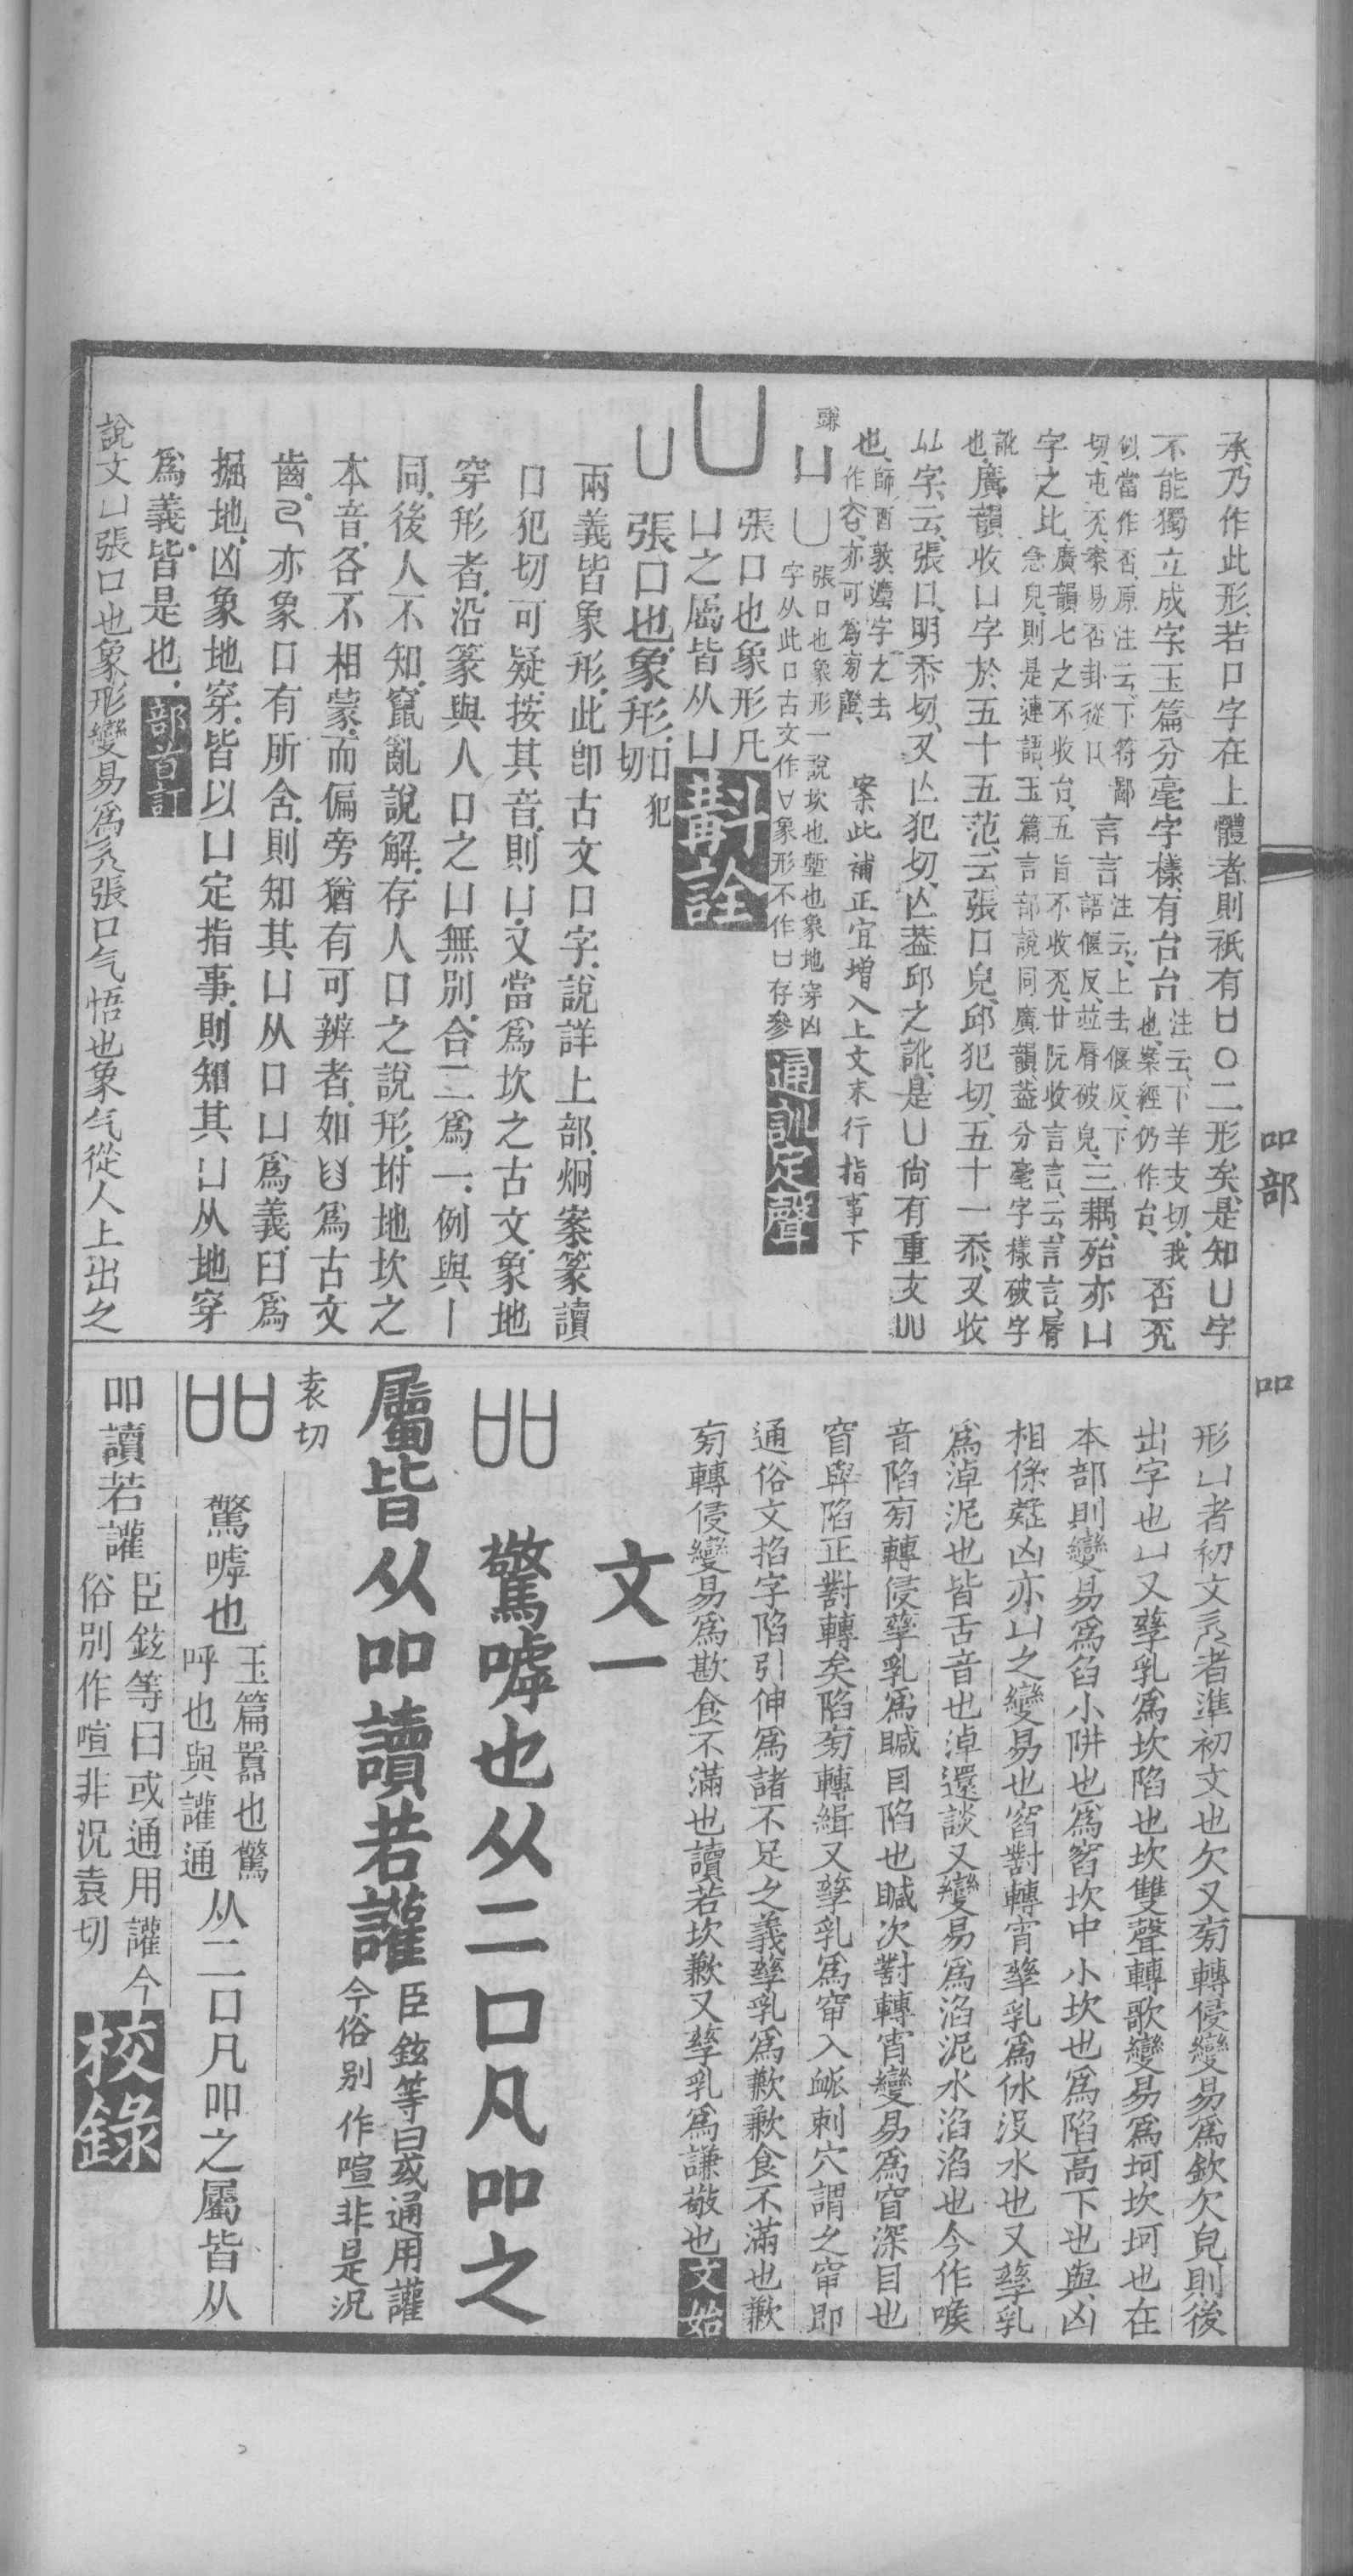 承乃作此形若口字在上體者則祇有口〇二形矣是知凵字
不能獨立成字玉篇分毫字樣有台台注云下羊支切我也案經仍作台否㐬
似當作否原注云下符鄙切㐬案易否卦從口言言注云上去偃反下語偃反並脣破皃三耦殆亦口
字之比廣韻七之不收台五旨不收㐬廿阮收言言云言言脣急皃則是連語玉篇言部說同廣韻葢分毫字樣破字
訛也廣韻收凵字於五十五范云張口皃邱犯切五十一忝又收
字云張口明忝切又丘犯切丘葢邱之訛是凵尚有重文
也師酉敦字之去作亦可爲㫄證案此補正宜增入上文末行指事下
凵張口也象形一說坎也塹也象地穿凶字从此口古文作象形不作口存參通訓定聲
張口也象形凡凵之屬皆从凵斠詮
凵張口也象形口犯切
兩義皆象形此卽古文口字說詳上部炯案篆讀
口犯切可疑按其音則凵又當爲坎之古文象地
穿形者沿篆與人口之凵無別合二爲一例與丨
同後人不知竄亂說解存人口之說形坿地坎之
本音各不相蒙而偏旁猶有可辨者如爲古文
齒亦象口有所含則知其凵从口凵爲義臼爲
掘地凶象地穿皆以凵定指事則知其凵从地穿
爲義皆是也部首訂
說文凵張口也象形變易爲旡張口气悟也象气從人上出之
吅部
吅
形凵者初文旡者準初文也欠又㫄轉侵變易爲欽欠皃則後
出字也凵又孳乳爲坎陷也坎雙聲轉歌變易爲坷坎坷也在
本部則變易爲臽小阱也爲窞坎中小坎也爲陷高下也與凶
相係疑凶亦凵之變易也窞對轉宵孳乳爲㲻沒水也又孳乳
爲淖泥也皆舌音也淖還談又變易爲淊泥水淊淊也今作喉
音陷㫄轉侵孳乳爲䁍目陷也䁍次對轉宵變易爲窅深目也
窅與陷正對轉矣陷㫄轉緝又孳乳爲䆘入衇刺穴謂之䆘即
通俗文掐字陷引伸爲諸不足之義孳乳爲歉歉食不滿也歉
㫄轉侵變易爲歁食不滿也讀若坎歉又孳乳爲謙敬也文始
文一
吅驚嘑也从二口凡吅之
屬皆从吅讀若讙臣鉉等曰或通用讙今俗别作喧非是況
袁切
吅驚嘑也玉篇嚻也驚呼也與讙通从二口凡吅之屬皆从
吅讀若讙臣鉉等曰或通用讙今俗別作喧非況袁切校錄